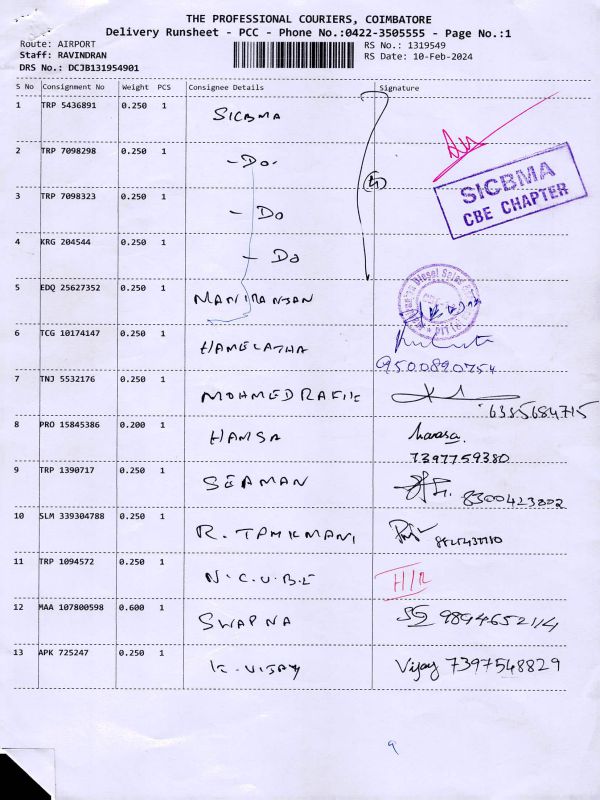 THE PROFESSIONAL COURIERS, COIMBATORE
Delivery Runsheet - PCC - Phone No.:0422-3505555 - Page No.:1
Route: AIRPORT RS No.: 1319549
Staff: RAVINDRAN RS Date: 10-Feb-2024
DRS No.: DCJB131954901
S No Consignment No Weight PCS Consignee Details Signature
1 TRP 5436891 0.250 1 SICBMA
2 TRP 7098298 0.250 1 - Do -
SICBMA
CBE CHAPTER
3 TRP 7098323 0.250 1 - Do
4 KRG 204544 0.250 1 - Do
5 EDQ 25627352 0.250 1 MANIRANJAN
6 TCG 10174147 0.250 1 HAMELATHA
9500820754
7 TNJ 5532176 0.250 1 MOHMEDRAFIK
6385684715
8 PRO 15845386 0.200 1 HAMSA Hamsa.
7397759380
9 TRP 1390717 0.250 1 SEAMAN 8300423802
10 SLM 339304788 0.250 1
11 TRP 1094572 0.250 1 N.C.U.B.E H/R
12 MAA 107800598 0.600 1 SWAPNA 9894652114
13 APK 725247 0.250 1 K. VIJAY Vijay 7397548829
9